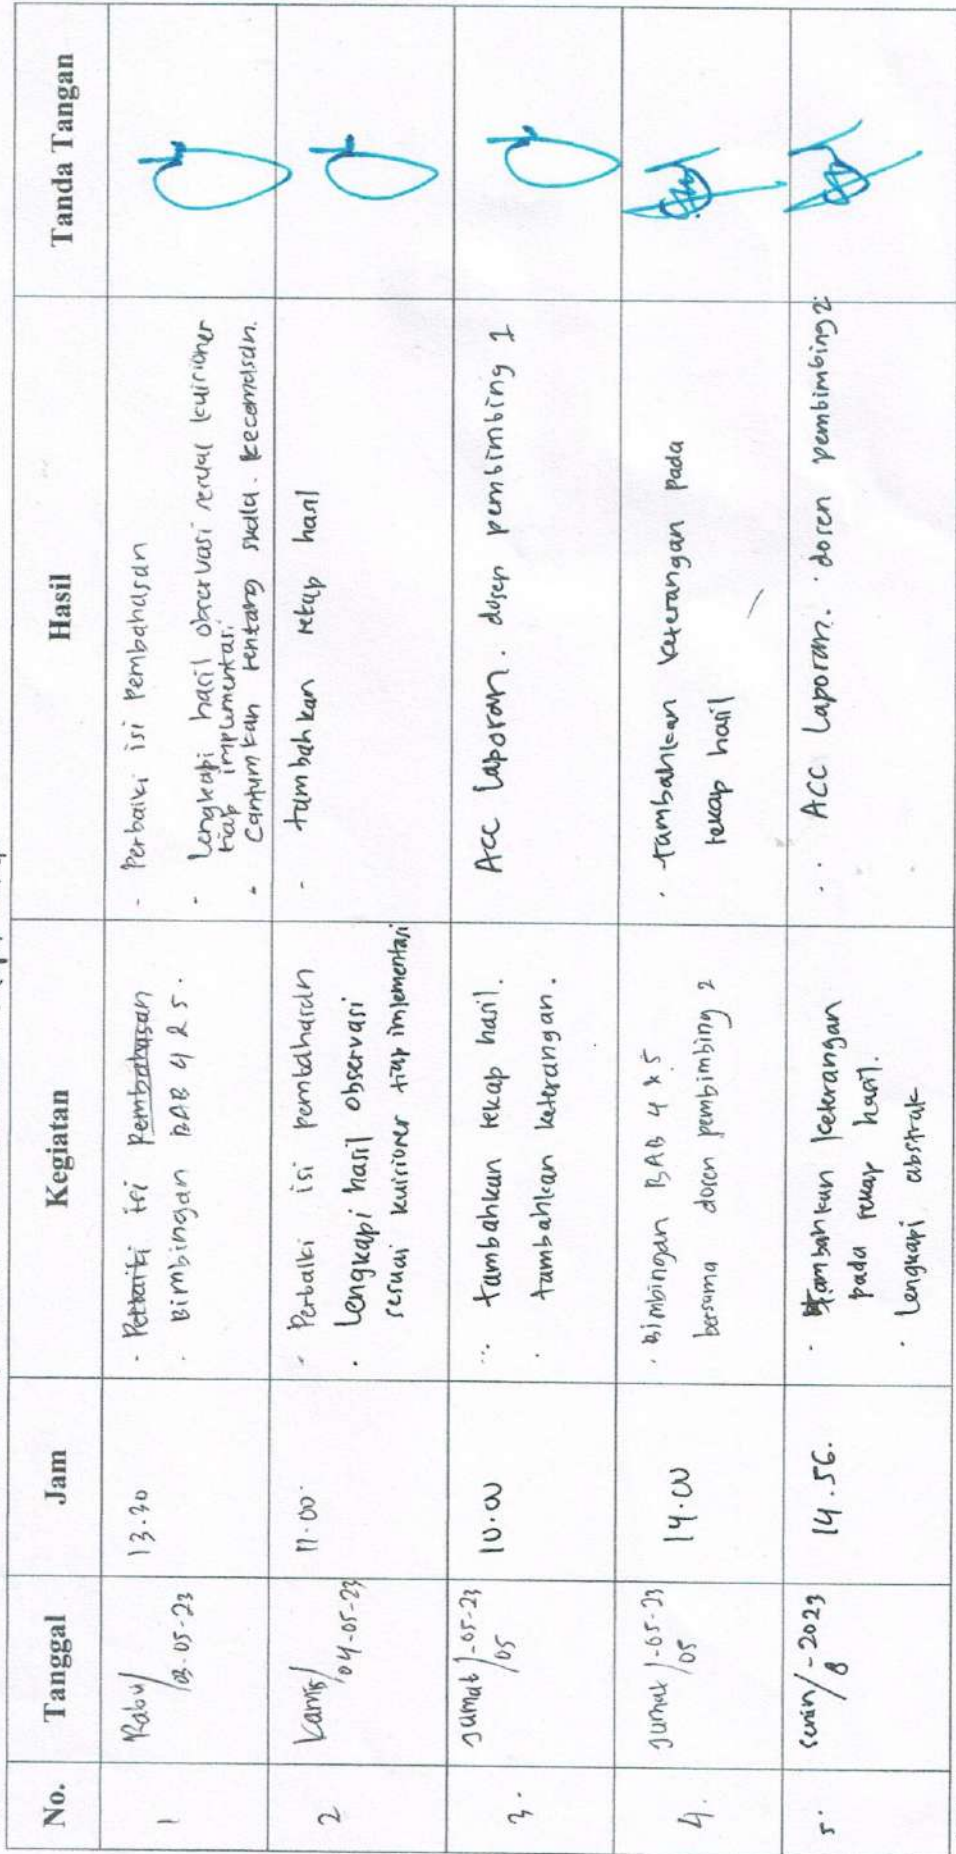 No. Tanggal Jam Kegiatan Hasil Tanda Tangan
1
Rabu/
03-05-23
13.30
- Perbaiki isi Pembahasan
. Bimbingan BAB 4 & 5.
- Perbaiki isi Pembahasan
- Lengkapi hasil observasi sesuai kuisioner
tiap implementasi
- Cantumkan rentang skala kecemasan.
2
Kamis/
04-05-23
11.00
- Perbaiki isi pembahasan
. Lengkapi hasil observasi
sesuai kuisioner tiap implementasi
- tambahkan rekap hasil
3.
Jumat/-05-23
05
10.00
. tambahkan rekap hasil.
. tambahkan keterangan.
ACC Laporan. dosen pembimbing 1
4.
Jumat/-05-23
05
14.00
. Bimbingan BAB 4 & 5
bersama dosen pembimbing 2
. tambahkan keterangan pada
rekap hasil
5.
Senin/-2023
8
14.56.
. tambahkan keterangan
pada rekap hasil.
. Lengkapi abstrak
. ACC Laporan. dosen pembimbing 2